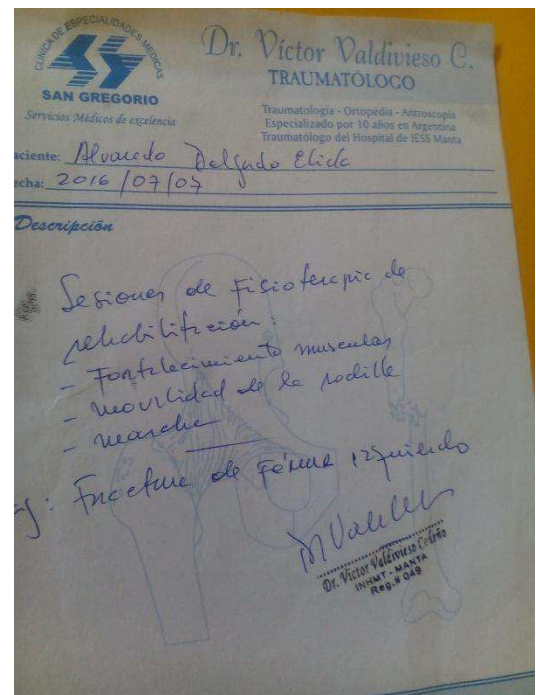 CLINICA DE ESPECIALIDADES MEDICAS
SAN GREGORIO
Servicios Médicos de excelencia
Dr. Víctor Valdivieso C.
TRAUMATÓLOGO
Traumatología - Ortopédia - Antroscopía
Especializado por 10 años en Argentina
Traumatólogo del Hospital de IESS Manta
aciente: Alvarado Delgado Elida
echa: 2016/07/07
Descripción
Sesiones de Fisioterapia de
rehabilitación:
- Fortalecimiento muscular
- movilidad de la rodilla
- marcha
: Fractura de Fémur izquierdo
Dr. Víctor Valdivieso Cedeño
INHMT - MANTA
Reg. # 049